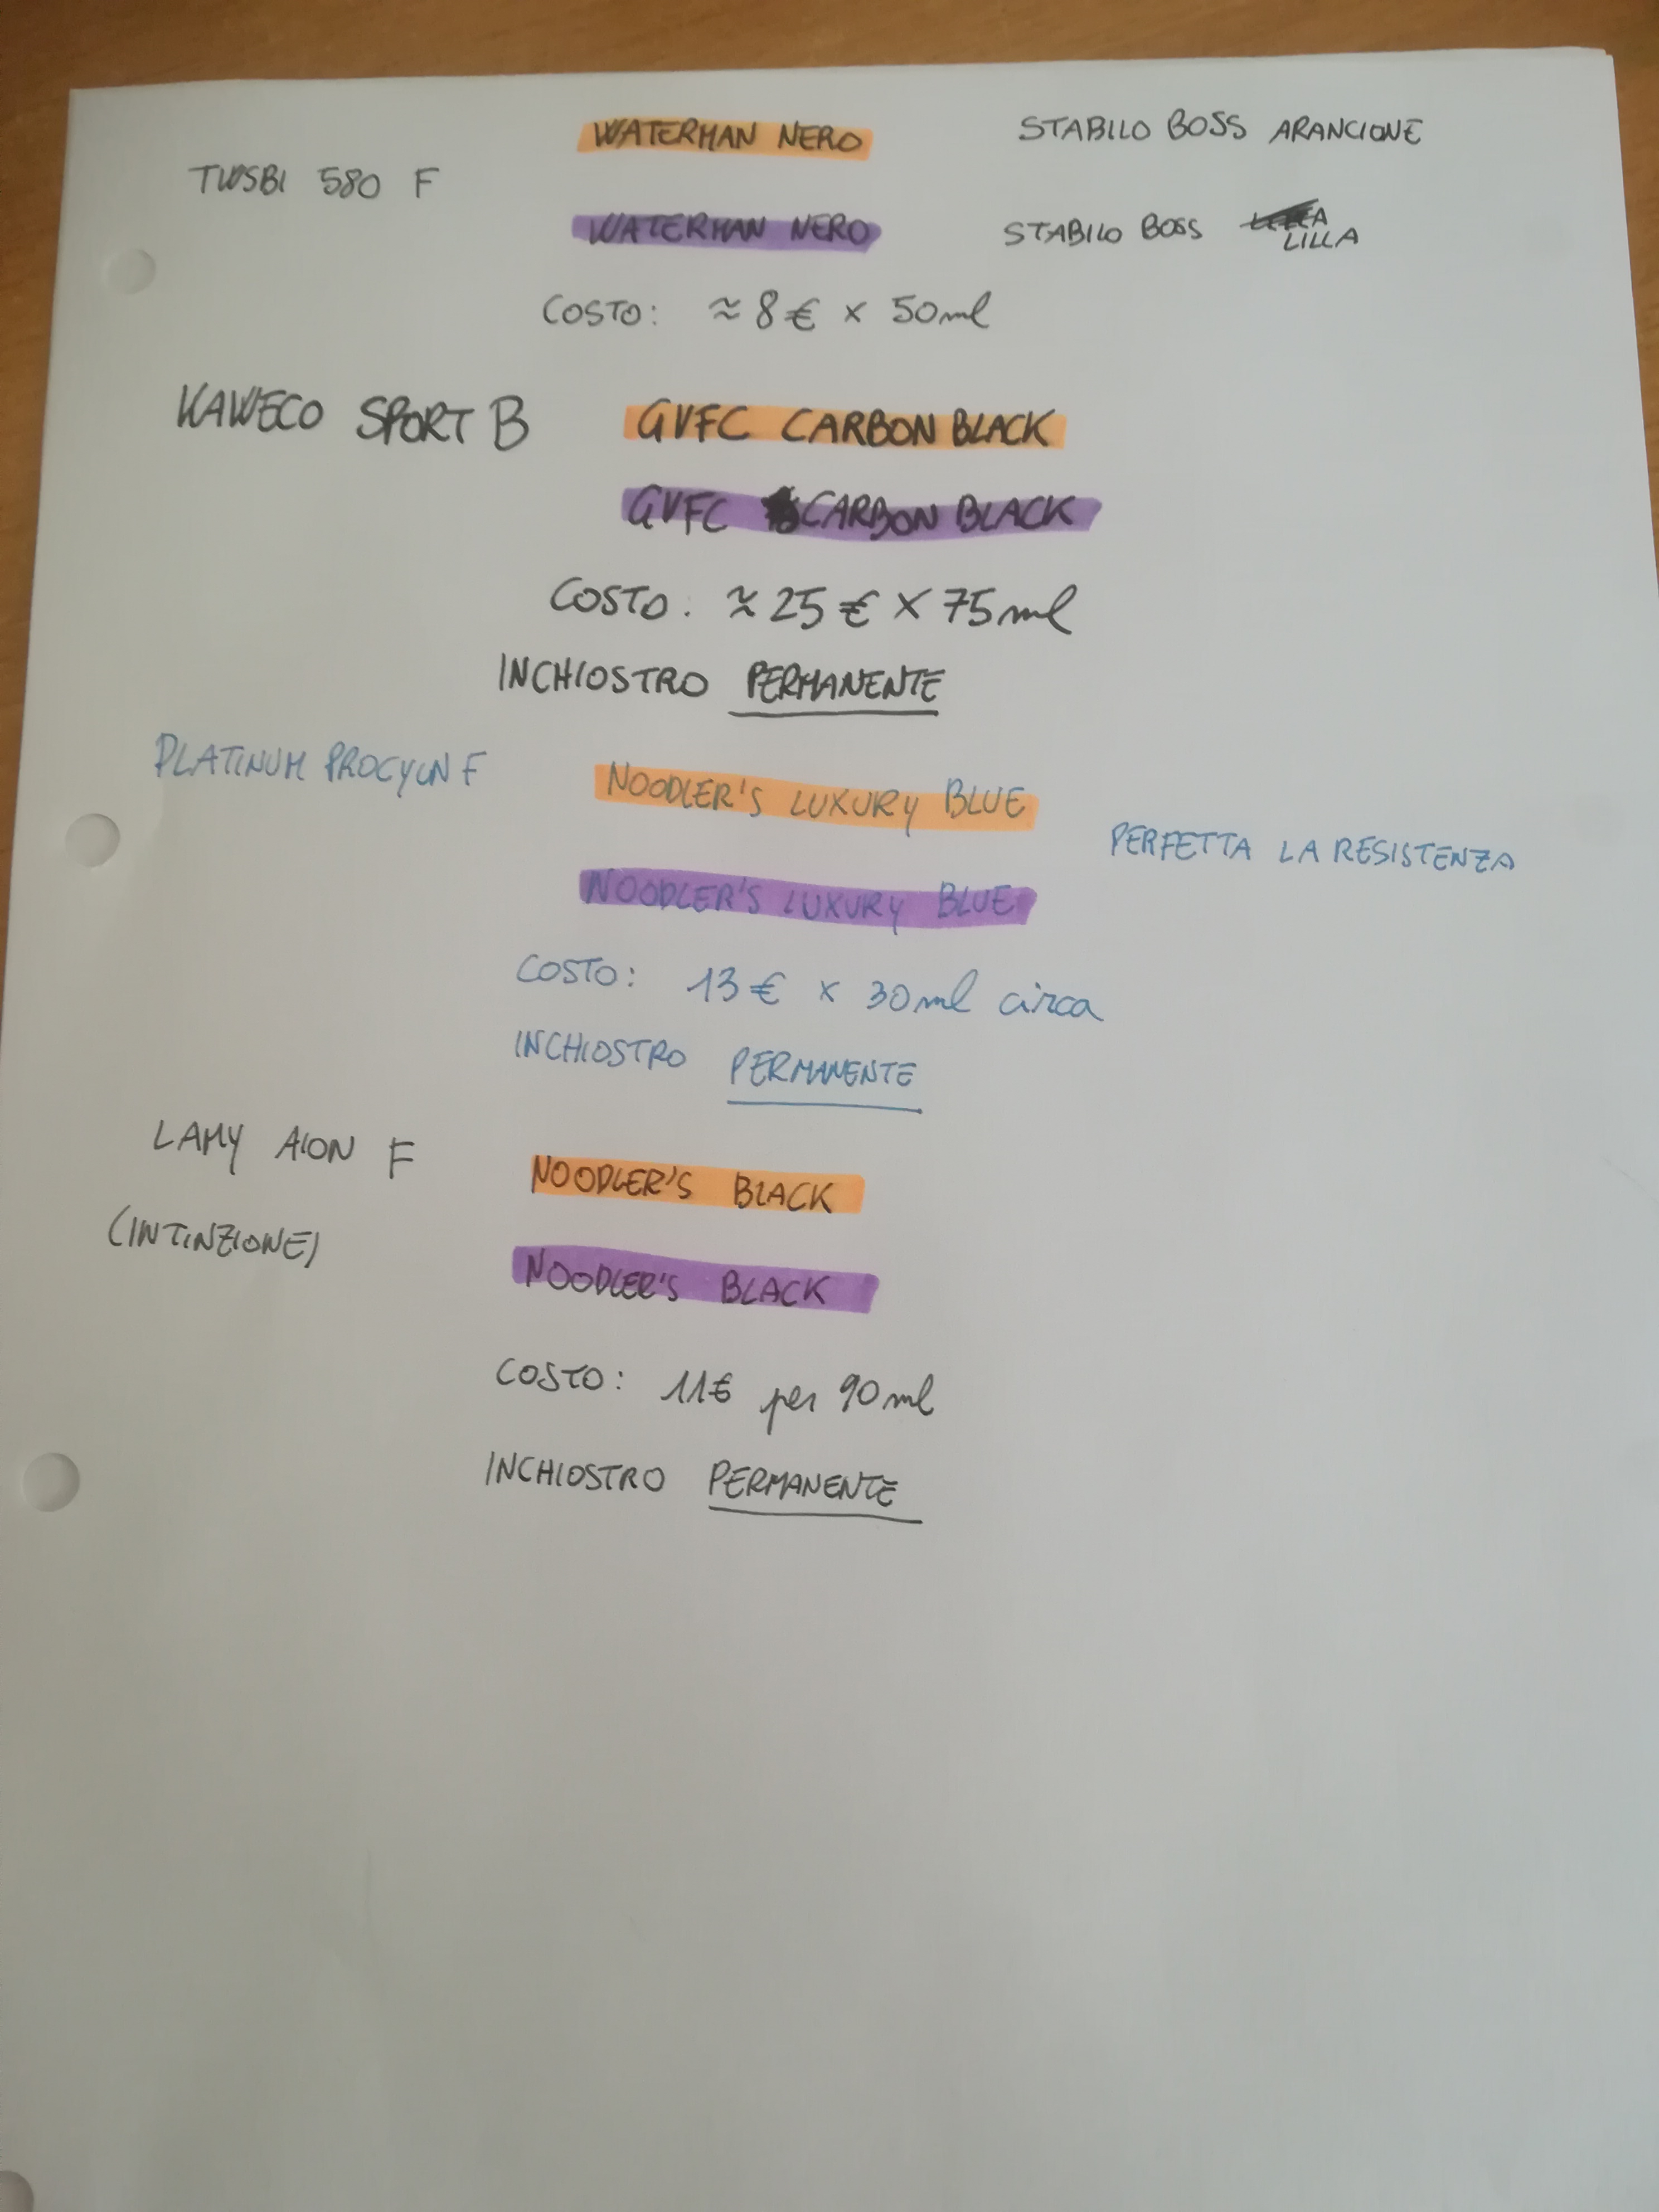 WATERMAN NERO STABILO BOSS ARANCIONE
TWSBI 580 F
WATERMAN NERO STABILO BOSS LILLA
COSTO: ≈ 8 € × 50ml
KAWECO SPORT B GVFC CARBON BLACK
GVFC CARBON BLACK
COSTO: ≈ 25 € × 75ml
INCHIOSTRO PERMANENTE
PLATINUM PROCYON F NOODLER'S LUXURY BLUE
PERFETTA LA RESISTENZA
NOODLER'S LUXURY BLUE
COSTO: 13 € × 30ml circa
INCHIOSTRO PERMANENTE
LAMY AION F NOODLER'S BLACK
(INTINZIONE) NOODLER'S BLACK
COSTO: 11€ per 90ml
INCHIOSTRO PERMANENTE